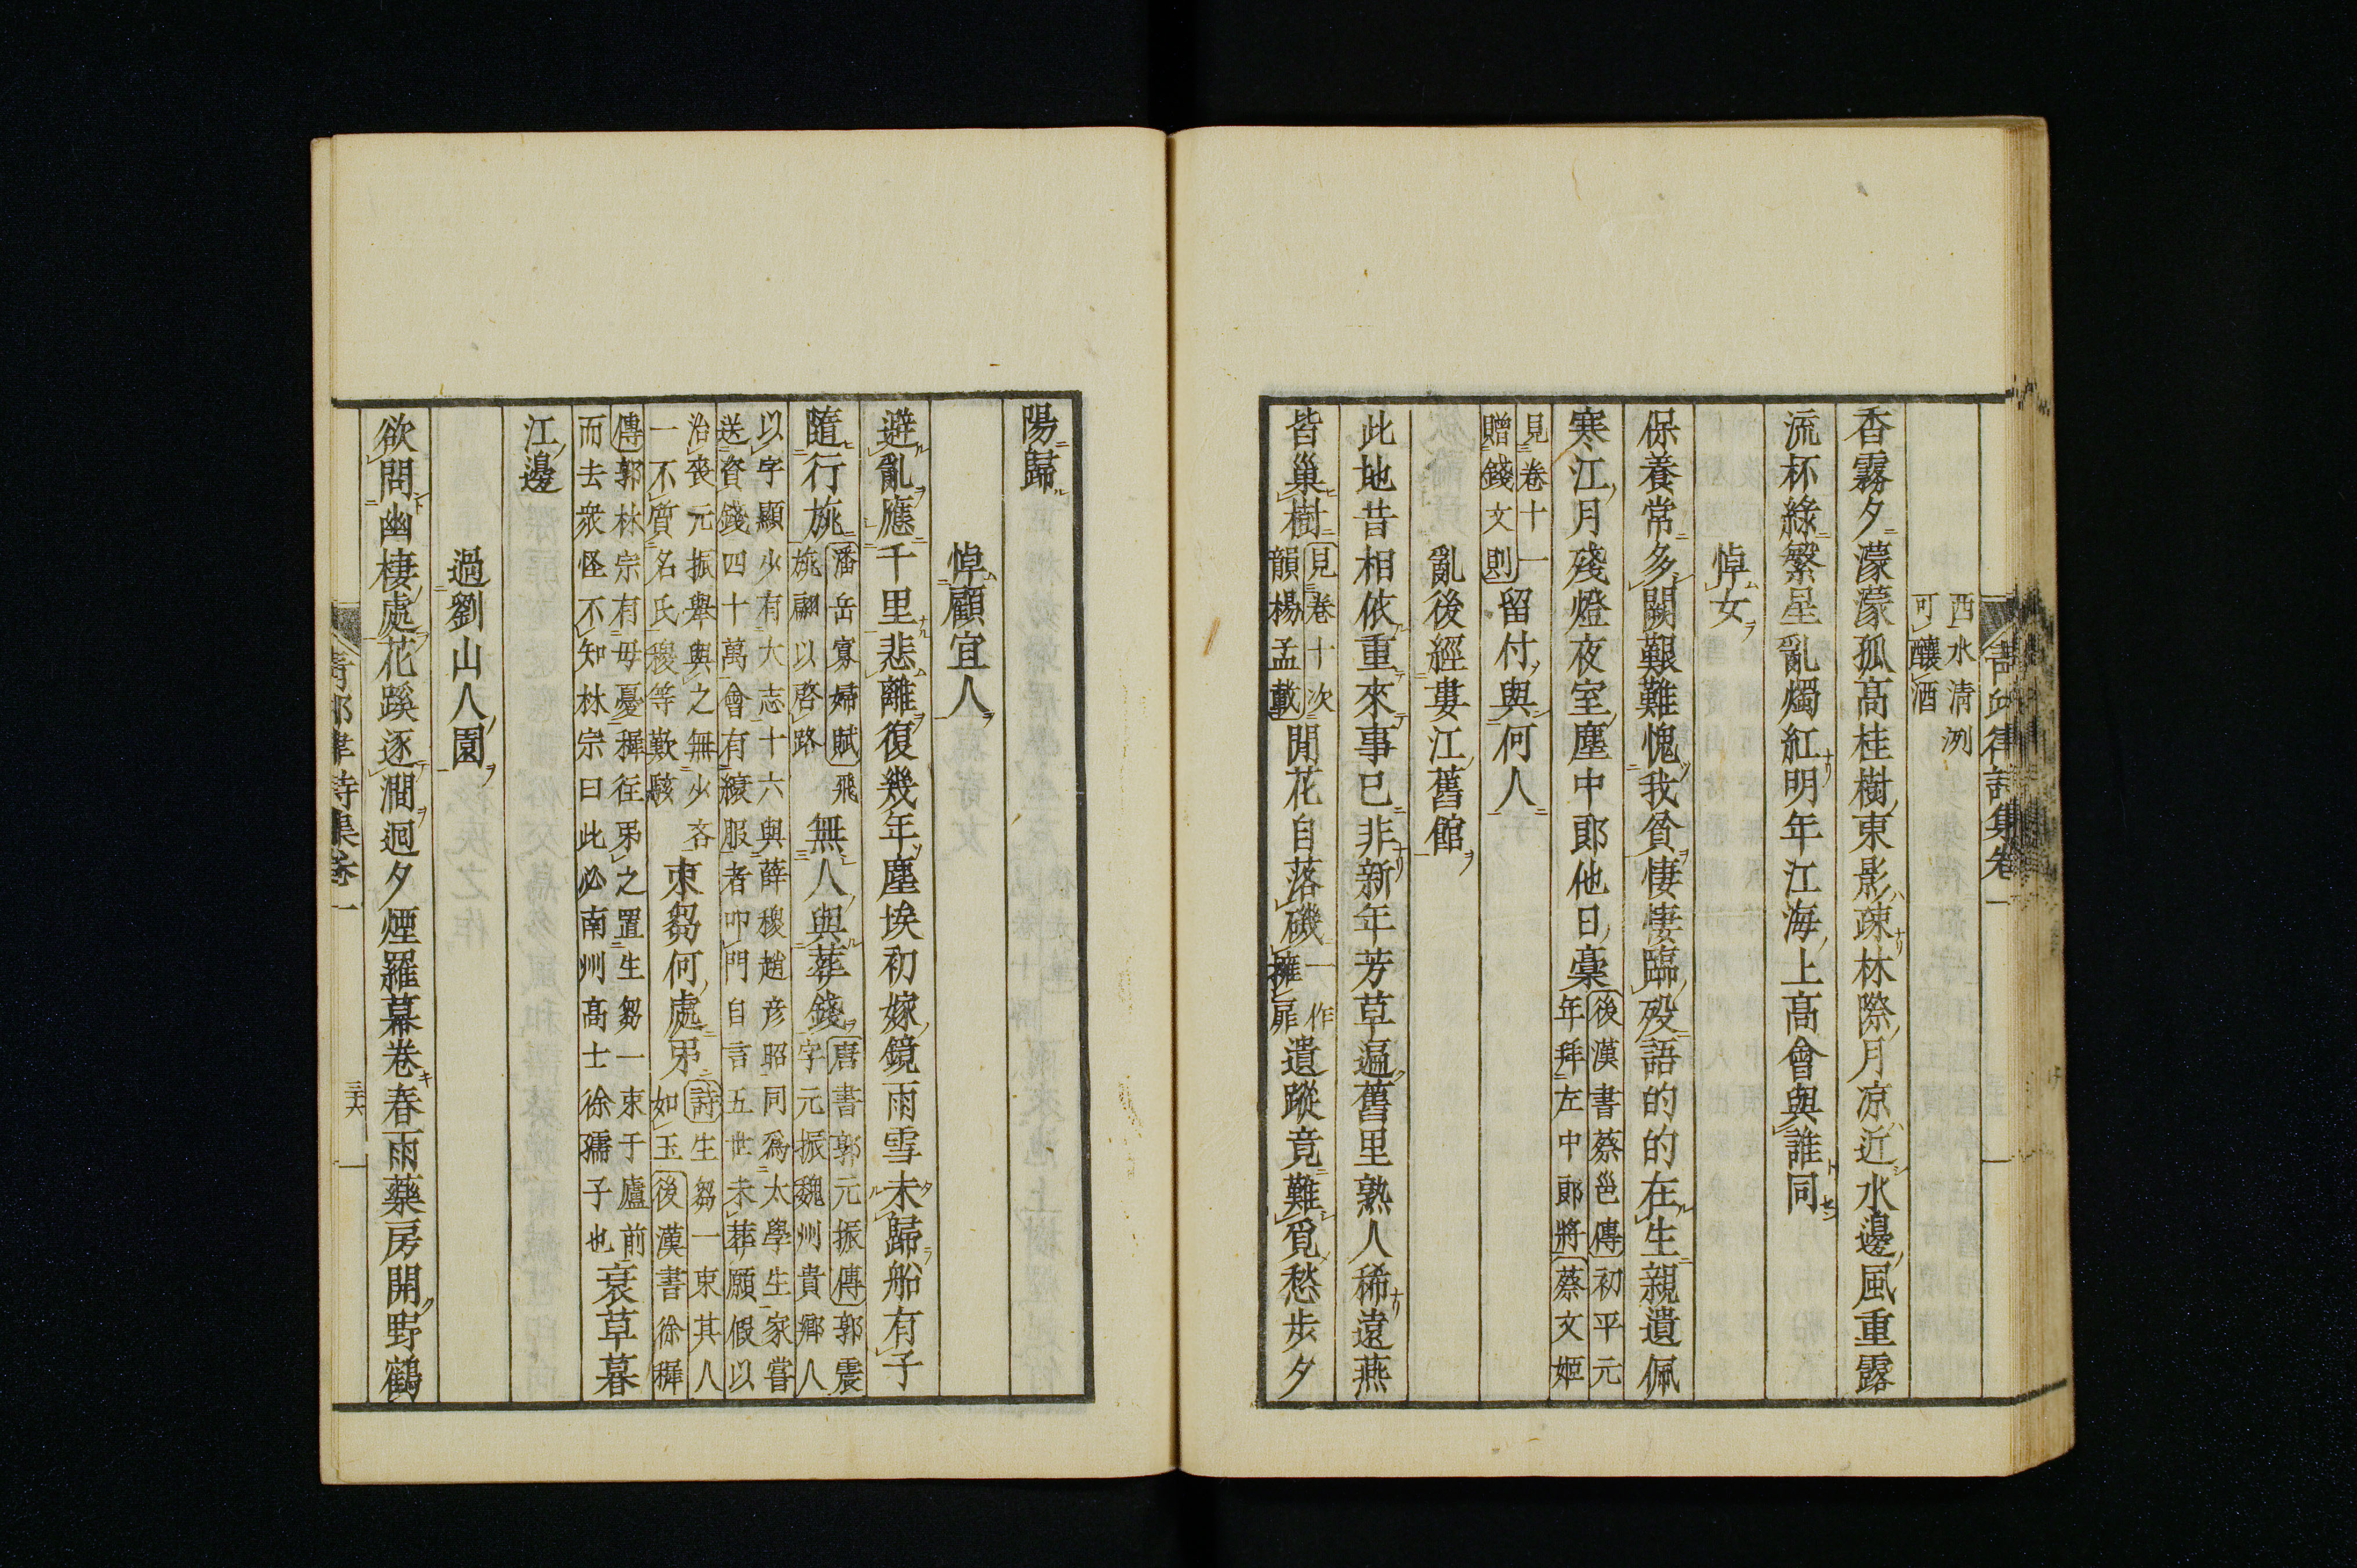 青邱律詩集卷一
西水清洌
可釀酒
香霧夕濛濛孤高桂樹東影疎林際月凉近水邊風重露
流杯綠繁星亂燭紅明年江海上高會與誰同
悼女
保養常多闕艱難愧我貧悽悽臨歿語的的在生親遺佩
寒江月殘燈夜室塵中郎他日稾
後漢書蔡邕傳初平元
年拜左中郎將蔡文姬
見卷十一
贈錢文則
留付與何人
亂後經婁江舊館
此地昔相依重來事已非新年芳草遍舊里熟人稀遠燕
皆巢樹
見卷十次
韻楊孟載
閒花自落磯
一作
擁扉
遺蹤竟難覓愁步夕
陽歸
悼顧宜人
避亂應千里悲離復幾年塵埃初嫁鏡雨雪未歸船有子
隨行旐
潘岳寡婦賦飛
旐翩以啓路
無人與葬錢
唐書郭元振傳郭震
字元振魏州貴鄉人
以字顯少有大志十六與薛稷趙彦昭同爲太學生家嘗
送資錢四十萬會有縗服者叩門自言五世未葬願假以
治喪元振舉與之無少吝
一不質名氏稷等歎駭
束芻何處吊
詩生芻一束其人
如玉後漢書徐穉
傳郭林宗有母憂穉徃吊之置生芻一束于廬前
而去衆怪不知林宗曰此必南州高士徐孺子也
衰草暮
江邊
過劉山人園
欲問幽棲處花蹊逐澗迴夕煙羅幕卷春雨藥房開野鶴
青邱律詩集卷一
三六